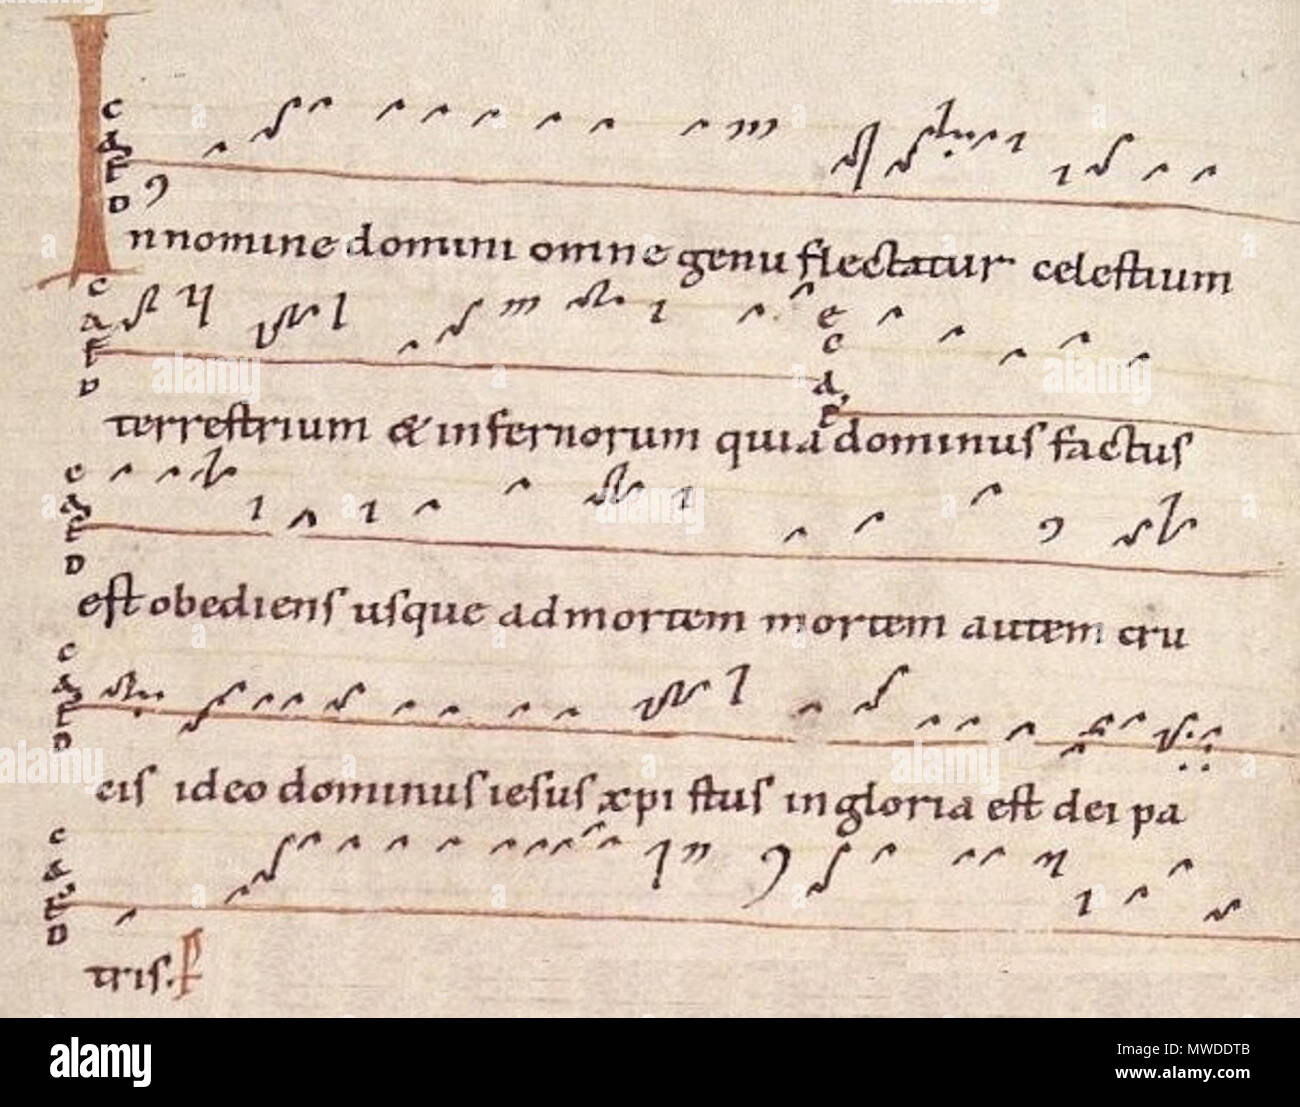 c
a
F
D
In nomine domini omne genu flectatur celestium
c
a
F
D
e
c
a
F
terrestrium & in fernorum quia dominus factus
e
c
a
F
D
est obediens usque ad mortem mortem autem cru
c
a
F
D
cis ideo dominus iesus xpi stus in gloria est dei pa
c
a
F
D
tris. P
alamy
Image ID: MWDDTB
www.alamy.com